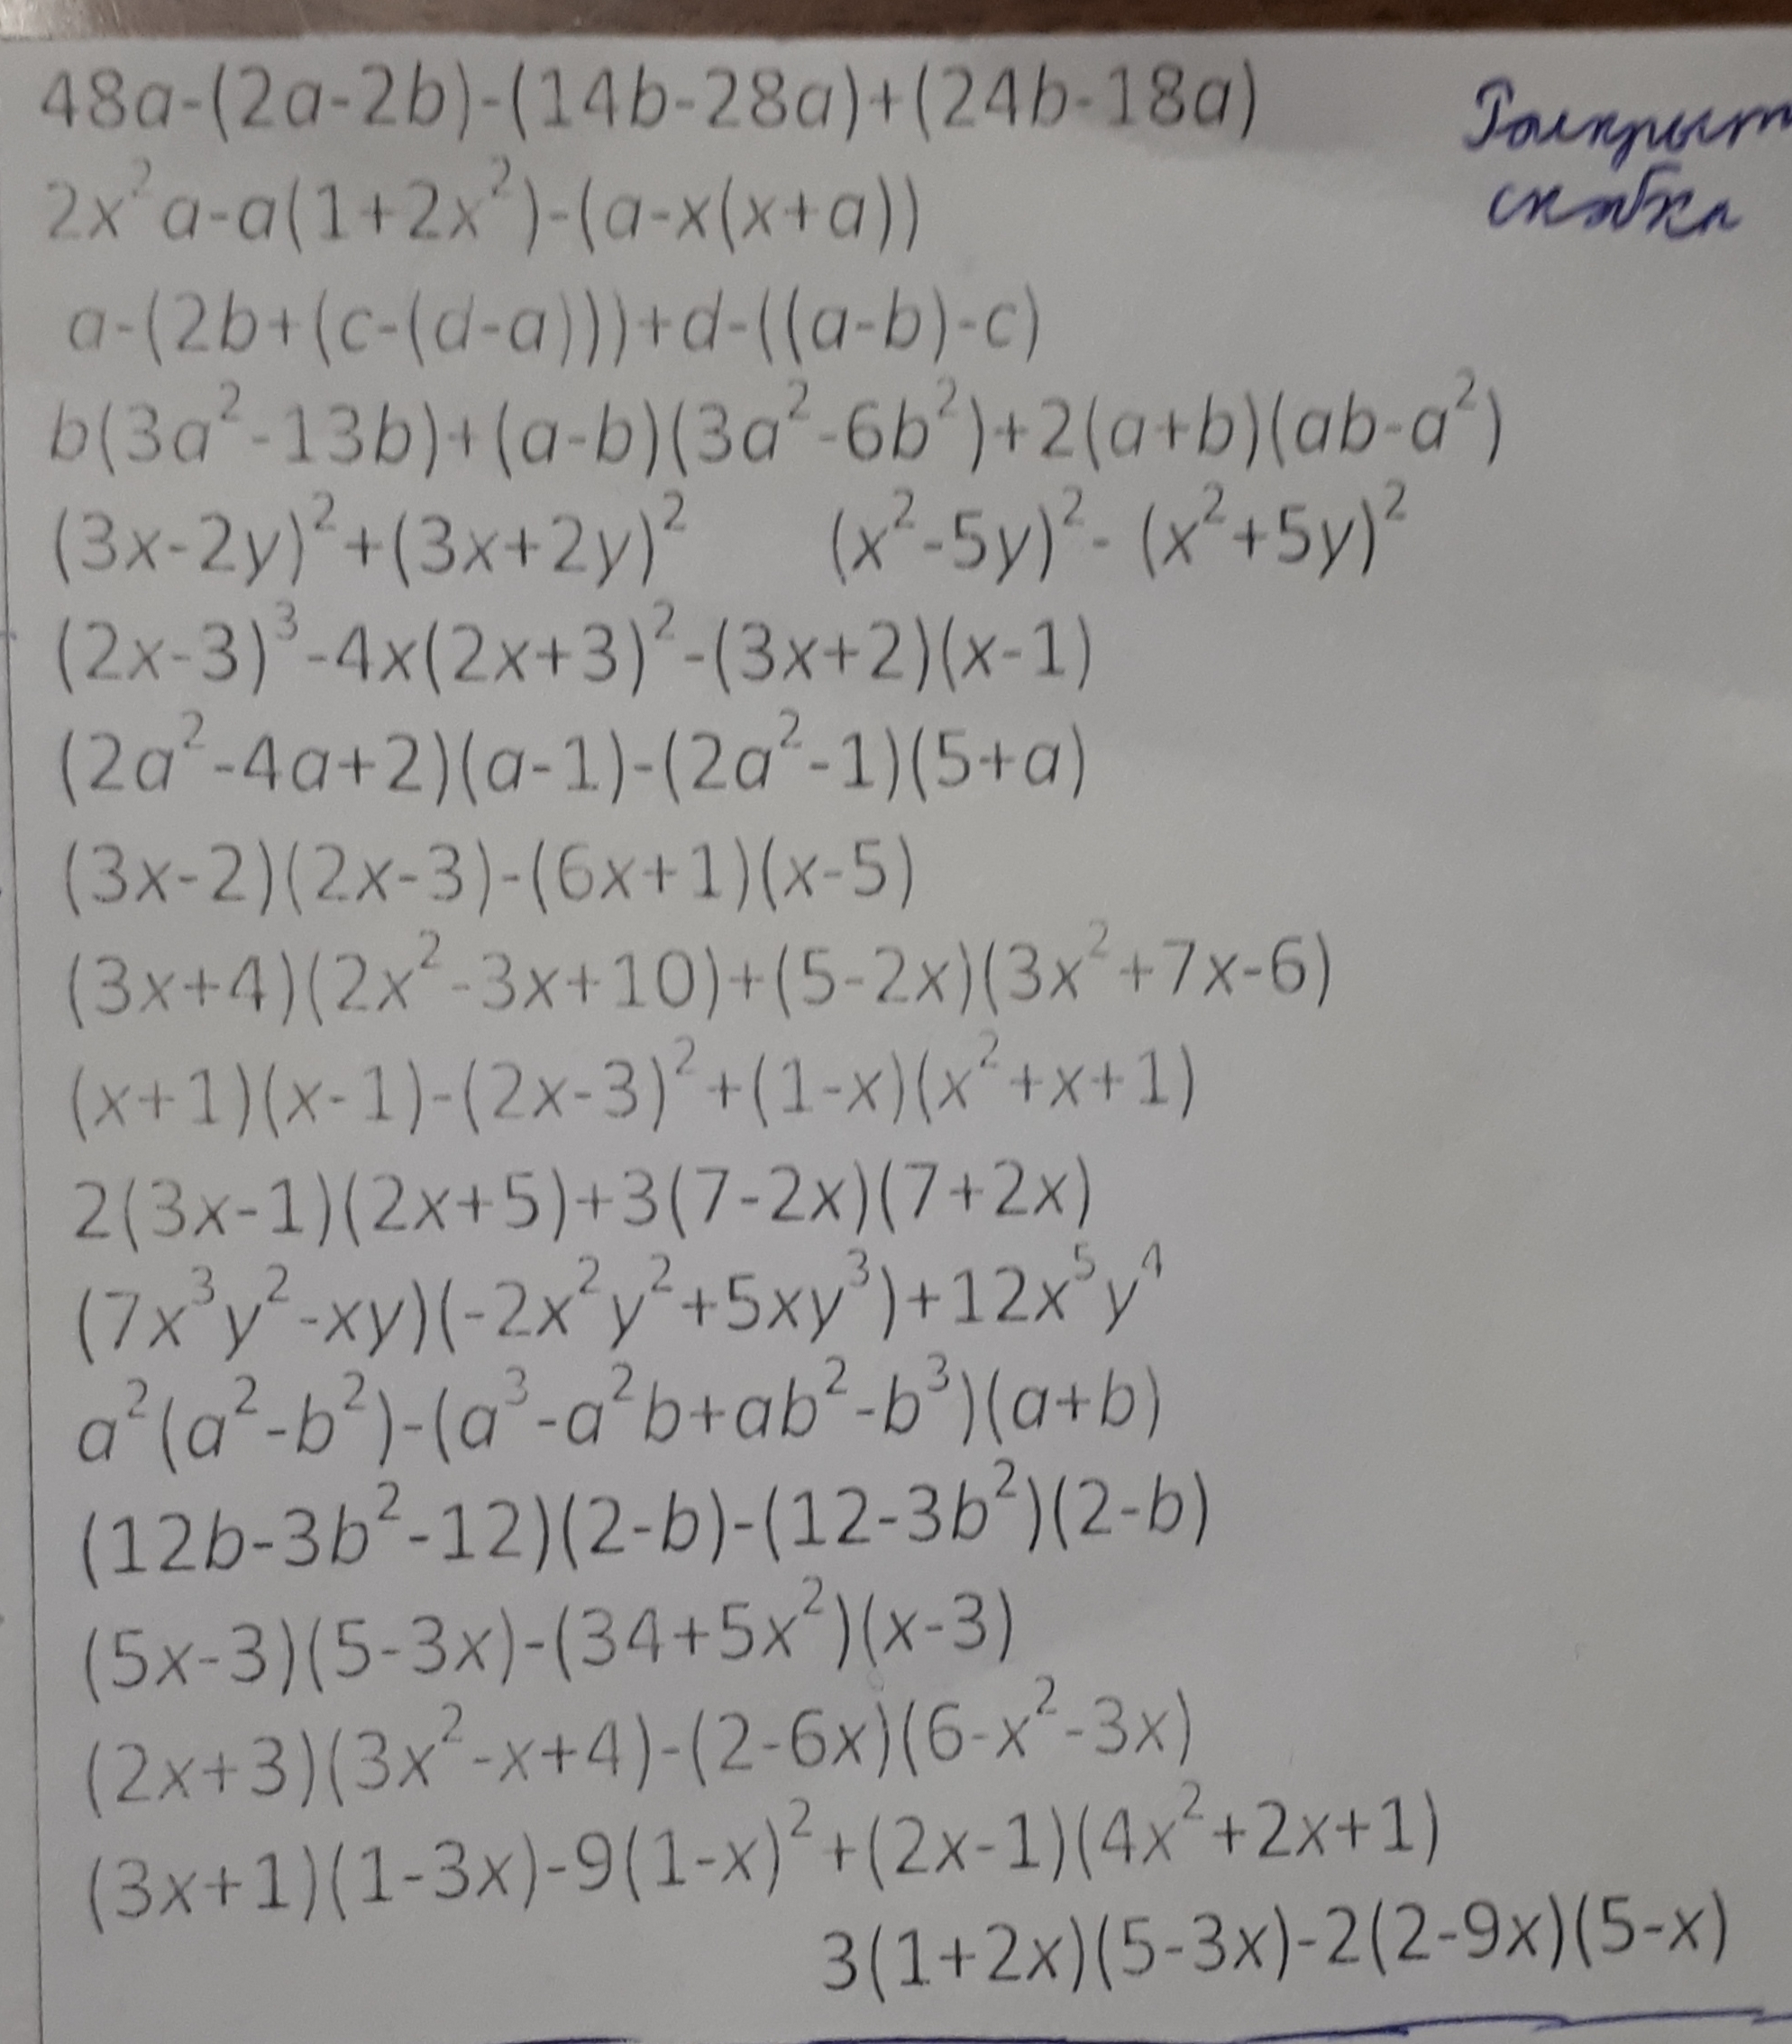 48a-(2a-2b)-(14b-28a)+(24b-18a)
Раскрыт
скобки
2x²a-a(1+2x²)-(a-x(x+a))
a-(2b+(c-(d-a)))+d-((a-b)-c)
b(3a²-13b)+(a-b)(3a²-6b²)+2(a+b)(ab-a²)
(3x-2y)²+(3x+2y)² (x²-5y)²- (x²+5y)²
(2x-3)³-4x(2x+3)²-(3x+2)(x-1)
(2a²-4a+2)(a-1)-(2a²-1)(5+a)
(3x-2)(2x-3)-(6x+1)(x-5)
(3x+4)(2x²-3x+10)+(5-2x)(3x²+7x-6)
(x+1)(x-1)-(2x-3)²+(1-x)(x²+x+1)
2(3x-1)(2x+5)+3(7-2x)(7+2x)
(7x³y²-xy)(-2x²y²+5xy³)+12x⁵y⁴
a²(a²-b²)-(a³-a²b+ab²-b³)(a+b)
(12b-3b²-12)(2-b)-(12-3b²)(2-b)
(5x-3)(5-3x)-(34+5x²)(x-3)
(2x+3)(3x²-x+4)-(2-6x)(6-x²-3x)
(3x+1)(1-3x)-9(1-x)²+(2x-1)(4x²+2x+1)
3(1+2x)(5-3x)-2(2-9x)(5-x)